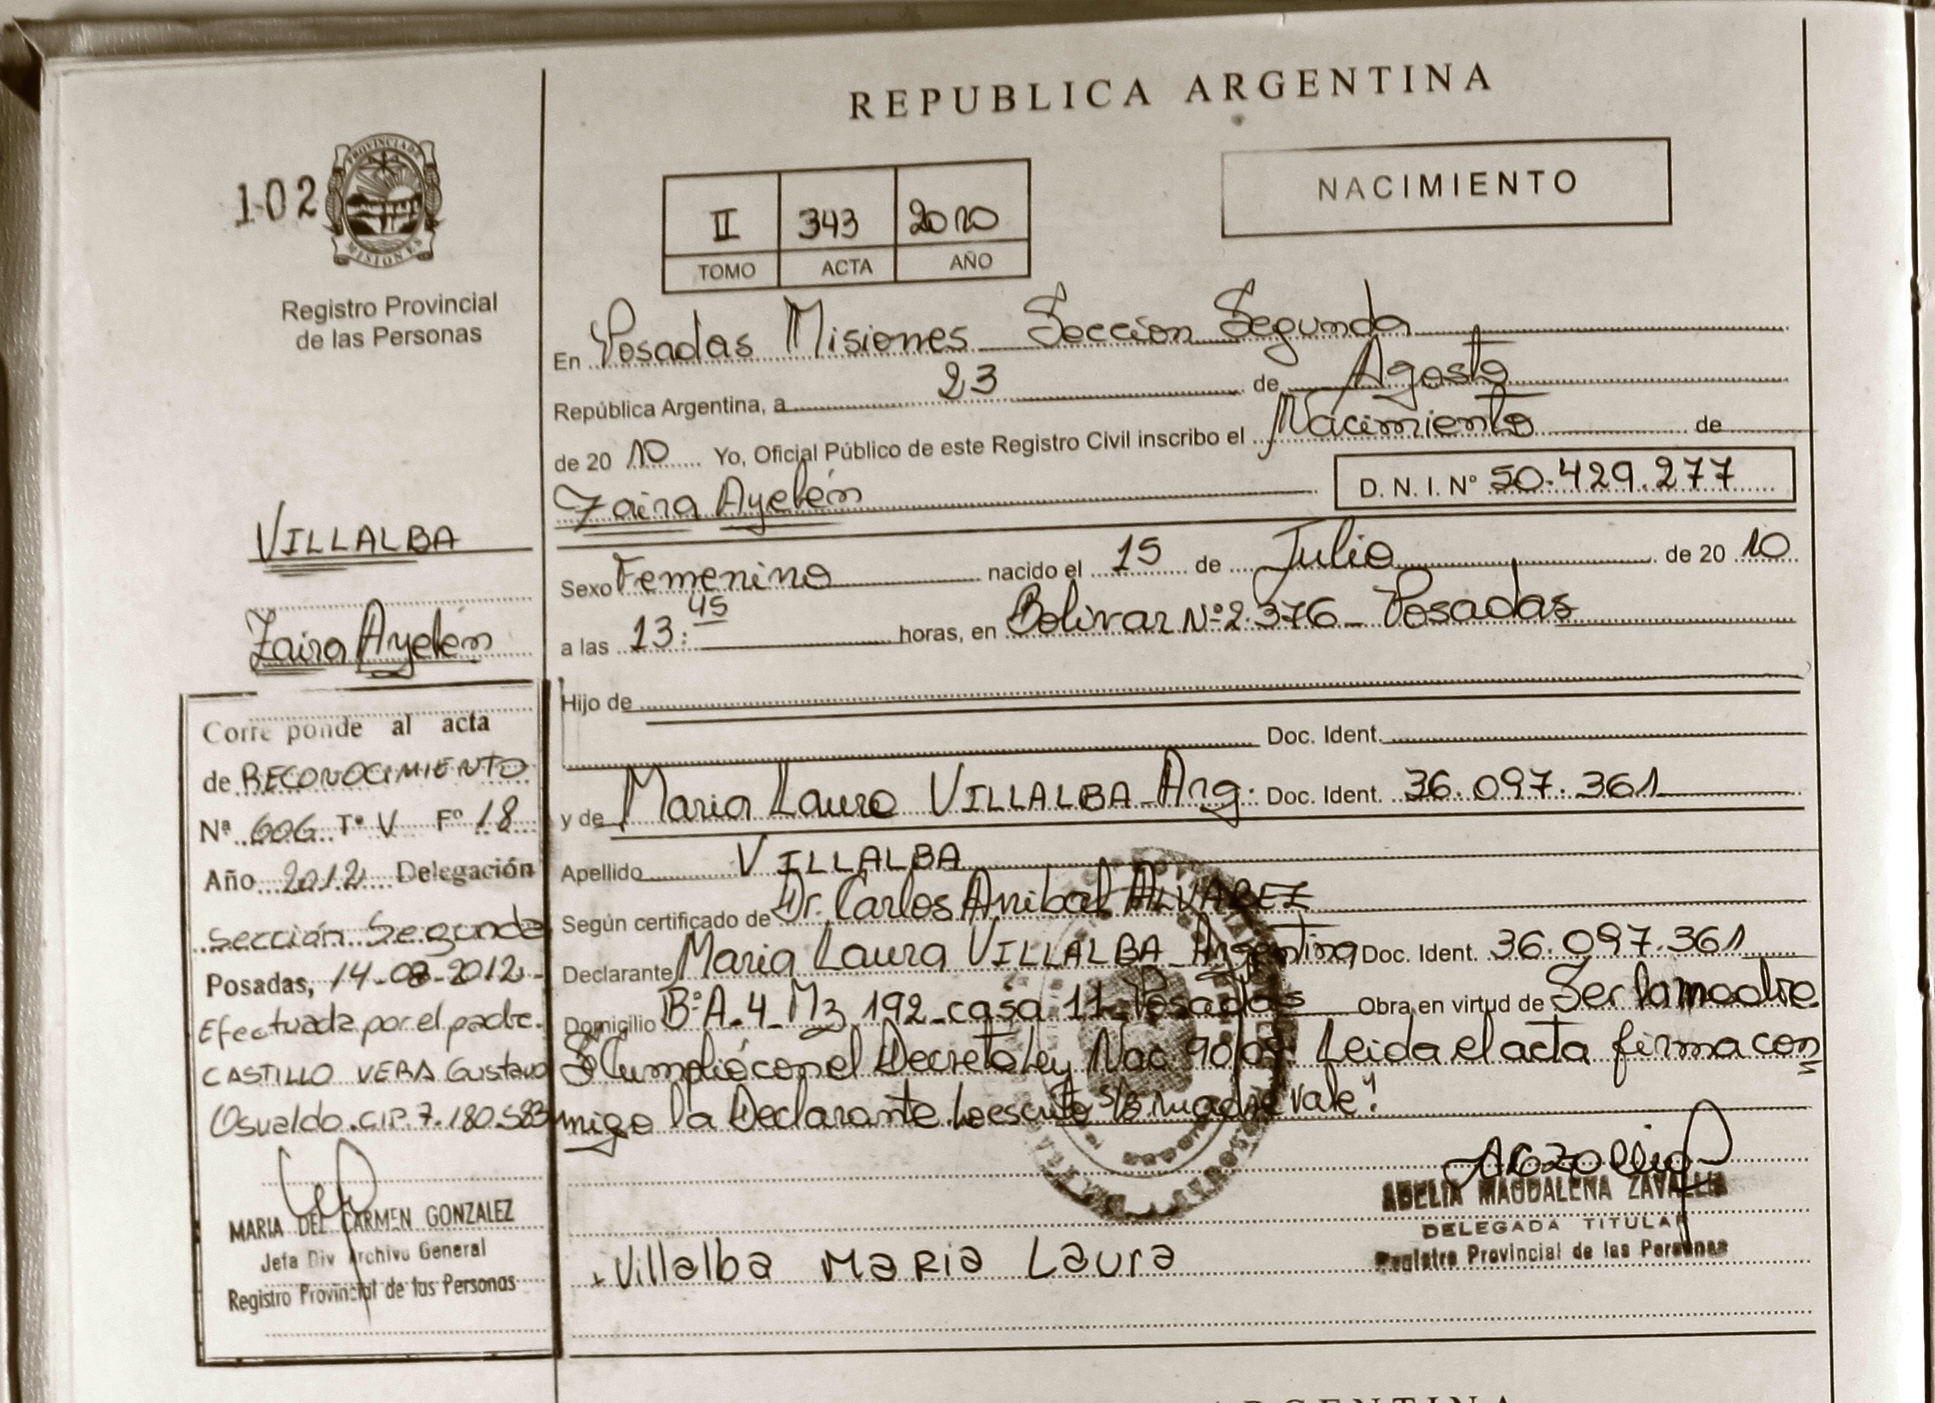 REPUBLICA ARGENTINA
102
PROVINCIA DE
MISIONES
Registro Provincial
de las Personas
II 343 2010
TOMO ACTA AÑO
NACIMIENTO
En Posadas Misiones Sección Segunda
República Argentina, a 23 de Agosto
de 20 10 Yo, Oficial Público de este Registro Civil inscribo el Nacimiento de
Zaira Ayelén D. N. I. Nº 50.429.277
VILLALBA
Zaira Ayelén
Sexo Femenino nacido el 15 de Julio de 20 10
a las 13:45 horas, en Bolivar Nº 2.376 - Posadas
Hijo de
Doc. Ident.
y de Maria Laura VILLALBA Arg. Doc. Ident. 36.097.361
Apellido VILLALBA
Según certificado de Dr. Carlos Anibal ALVAREZ
Declarante Maria Laura VILLALBA Argentina Doc. Ident. 36.097.361
Domicilio Bº A-4 Mz 192 casa 11 Posadas Obra en virtud de Ser la madre
Cumplió con el Decreto Ley Nac. Leida el acta firma con
migo la Declarante Lo escrito la madre vale".
Corre ponde al acta
de RECONOCIMIENTO
Nª 606 Tº V Fº 18
Año 2012 Delegación
Sección Segunda
Posadas, 14-08-2012-
Efectuada por el padre.
CASTILLO VERA Gustavo
Osvaldo. CIP. 7.180.583
MARIA DEL CARMEN GONZALEZ
Jefa Div Archivo General
Registro Provincial de las Personas
ADELIA MAGDALENA ZAVALLIA
DELEGADA TITULAR
Registro Provincial de las Personas
Villalba MARIA Laura
ARGENTINA